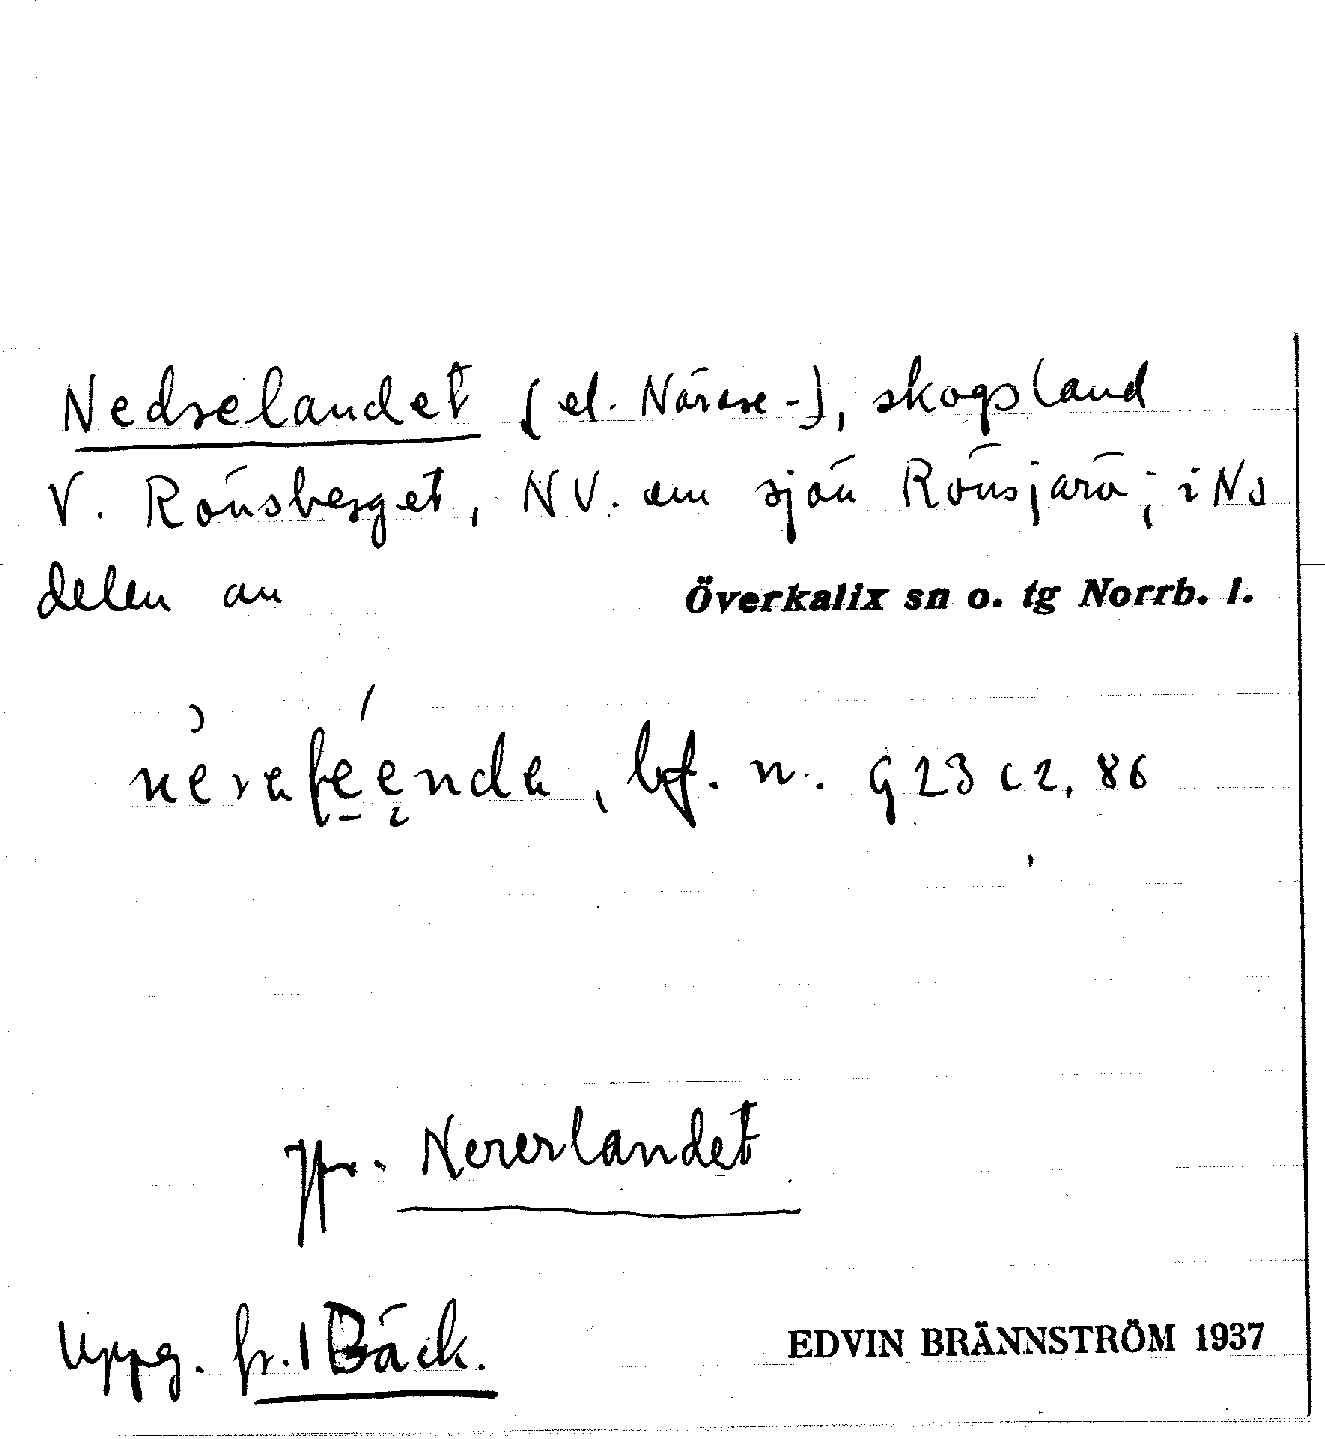 Nedrelandet [el. Närare-], skogsland
V. Rönsberget, NV. om sjön Rönsjärv; i Nö
delen av Överkalix sn o. tg Norrb. l.
bf. n. G23 c2, 86
jfr. Nererlandet
Uppg. fr. Bäck. EDVIN BRÄNNSTRÖM 1937